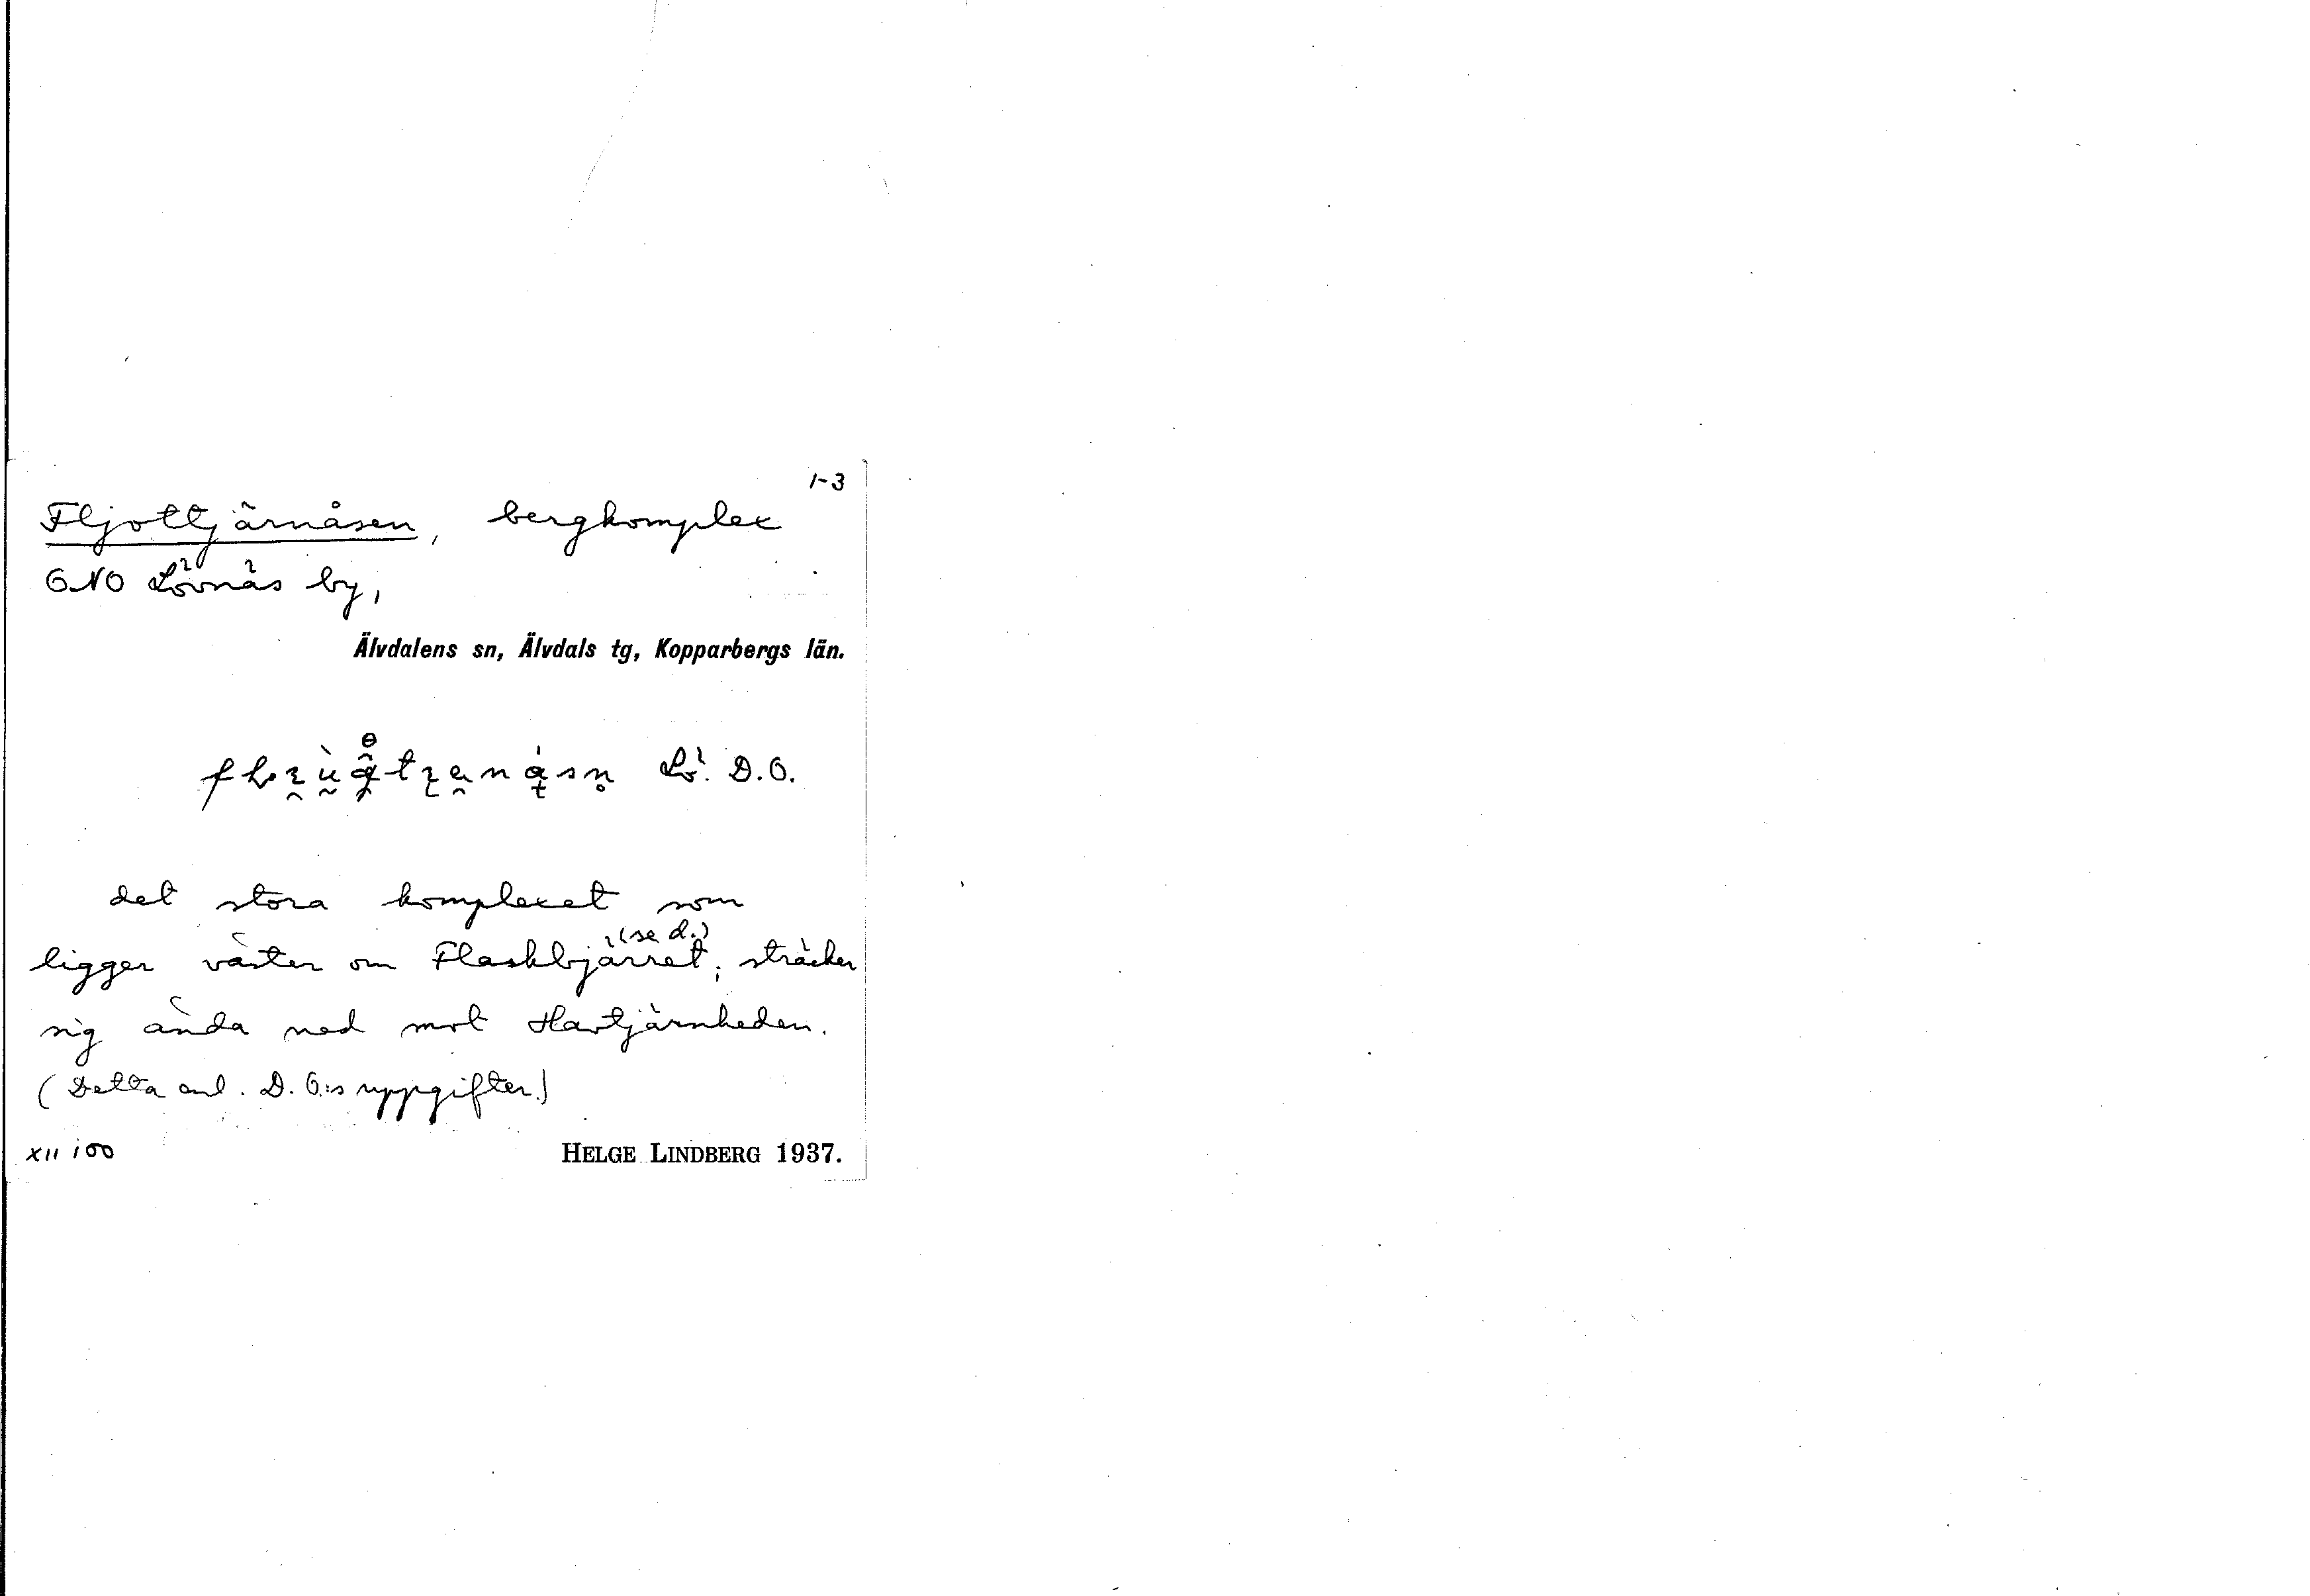 1-3
Fljottjärnåsen, bergkomplex
ONO Lövnäs by,
Älvdalens sn, Älvdals tg, Kopparbergs län.
Lö. D.O.
det stora komplexet som
ligger väster om Flaskbjärret (se d.); sträcker
sig ända ned mot Havtjärnheden.
(Detta enl. D.O:s uppgifter.)
XII 100
HELGE LINDBERG 1937.